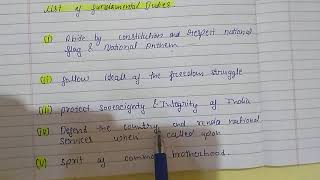 List of fundamental Duties
(i) Abide by constitution and respect national
flag & National Anthem
(ii) follow ideals of the freedom struggle
(iii) protect sovereignty & Integrity of India
(iv) Defend the country and render national
services when called upon
(v) Sprit of common brotherhood.